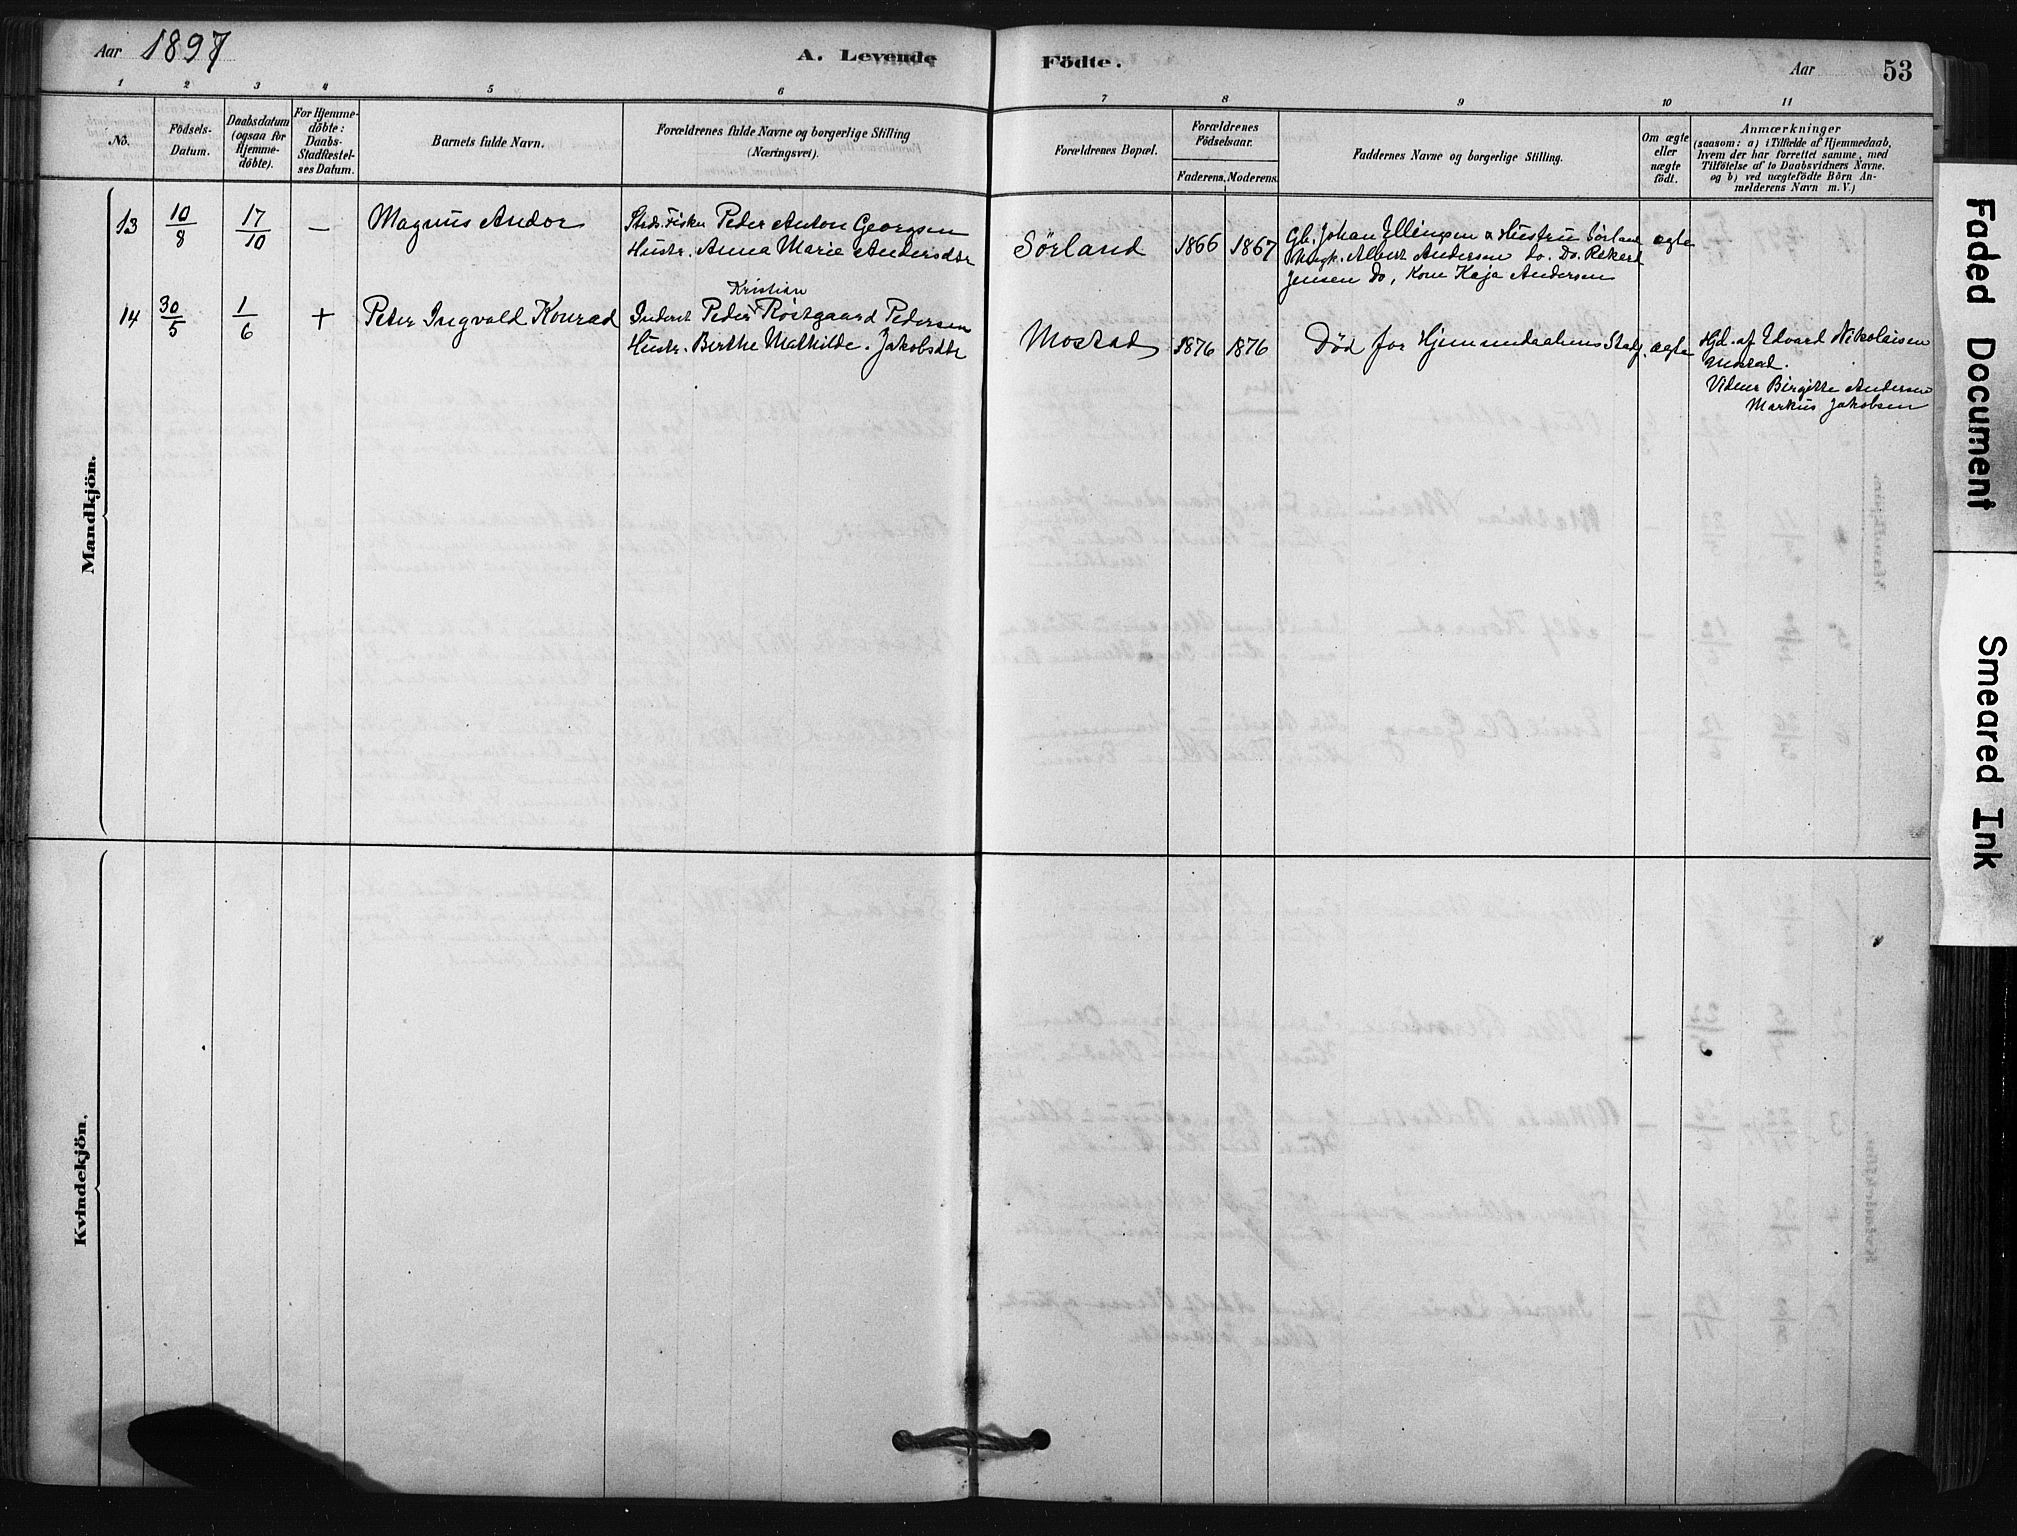 Aar 1897
A. Levende Födte.
Aar 53
1 2 3 4 5 6 7 8 9 10 11
No.
Födsels-
Datum.
Daabsdatum
(ogsaa for
Hjemme-
döbte).
For Hjemme-
döbte:
Daabs-
Stadfæstel-
ses Datum.
Barnets fulde Navn.
Forældrenes fulde Navne og borgerlige Stilling
(Næringsvei).
Forældrenes Bopæl.
Forældrenes
Födselsaar.
Faderens. Moderens.
Faddernes Navne og borgerlige Stilling.
Om ægte
eller
uægte
födt.
Anmærkninger
(saasom: a) i Tilfælde af Hjemmedaab,
hvem der har forrettet samme, med
Tilföielse af to Daabsvidners Navne.
og b) ved uægtefödte Börn An-
melderens Navn m. V.)
Mandkjön.
13 10/8 17/10 — Magnus Andor
Peder Anton Georgsen
Hustr. Anna Marie Andersdtr
Sörland 1866 1867
Gb. Johan Ellingsen & Hustru Sörland
Ungk. Albert Andersen do. Do. Rekert
Jensen Do, Kone Kaja Andersen
ægte
14 30/5 1/6 + Peter Ingvald Konrad
Kristian
Inderst Peder Röstgaard Pedersen
Hustr. Birthe Mathilde Jakobsdtr
Mostad 1876 1876
Död for Hjemmedaabens Stadf.
ægte
Hjd. af Edvard Nikolaisen
Mostad.
Vidner Birgitte Andersen
Markus Jakobsen
Kvindekjön.
Faded Document
Smeared Ink